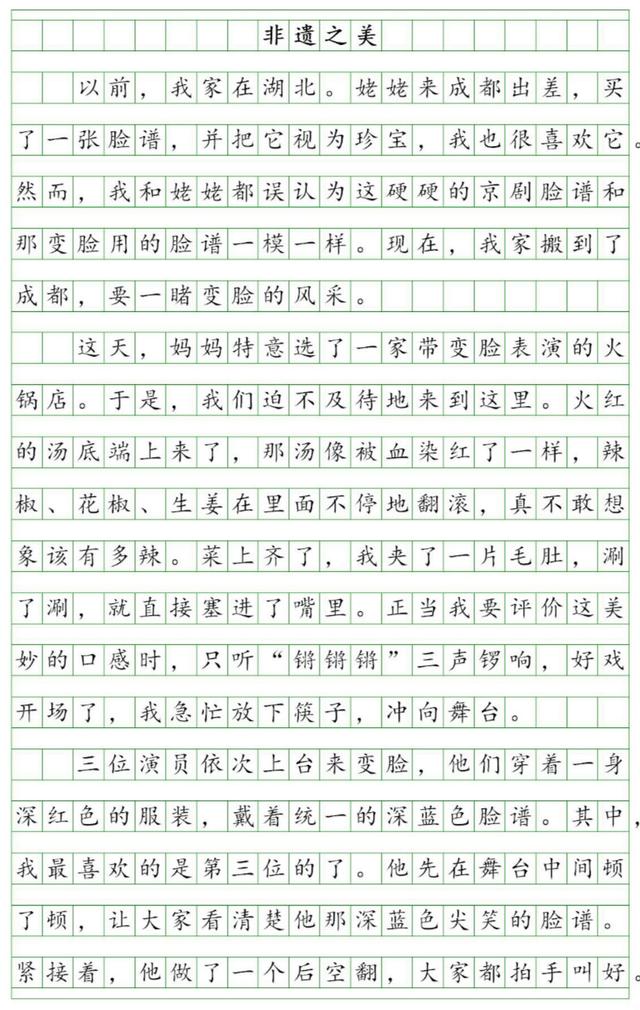 非遗之美
以前，我家在湖北。姥姥来成都出差，买
了一张脸谱，并把它视为珍宝，我也很喜欢它。
然而，我和姥姥都误认为这硬硬的京剧脸谱和
那变脸用的脸谱一模一样。现在，我家搬到了
成都，要一睹变脸的风采。
这天，妈妈特意选了一家带变脸表演的火
锅店。于是，我们迫不及待地来到这里。火红
的汤底端上来了，那汤像被血染红了一样，辣
椒、花椒、生姜在里面不停地翻滚，真不敢想
象该有多辣。菜上齐了，我夹了一片毛肚，涮
了涮，就直接塞进了嘴里。正当我要评价这美
妙的口感时，只听“锵锵锵”三声锣响，好戏
开场了，我急忙放下筷子，冲向舞台。
三位演员依次上台来变脸，他们穿着一身
深红色的服装，戴着统一的深蓝色脸谱。其中，
我最喜欢的是第三位的了。他先在舞台中间顿
了顿，让大家看清楚他那深蓝色尖笑的脸谱。
紧接着，他做了一个后空翻，大家都拍手叫好。